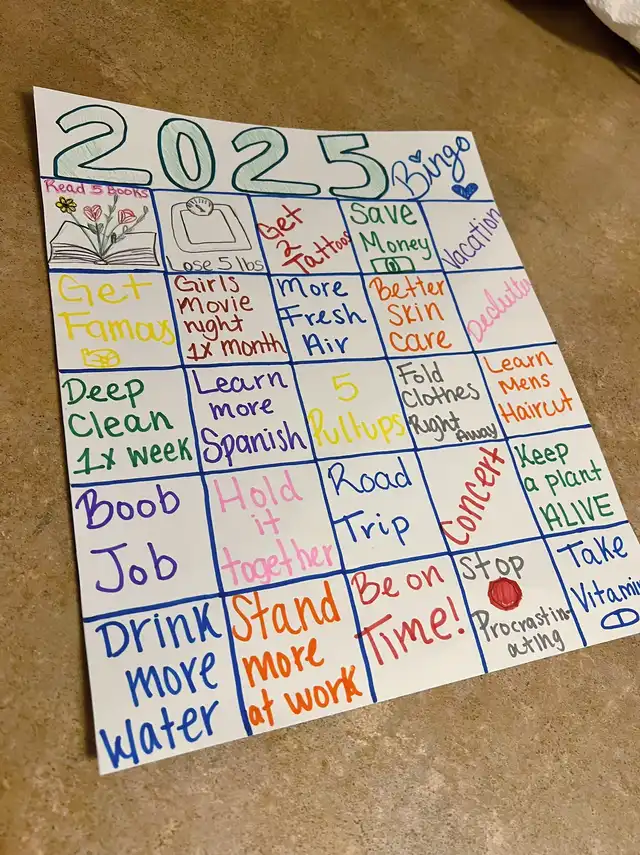 2025 Bingo
Read 5 Books
Lose 5 lbs
Get
2
Tattoos
Save
Money
Vacation
Get
Famous
Girls
Movie
night
1x month
More
Fresh
Air
Better
Skin
Care
Declutter
Deep
Clean
1x week
Learn
more
Spanish
5
Pullups
Fold
Clothes
Right Away
Learn
Mens
Haircut
Boob
Job
Hold
it
together
Road
Trip
Concert
Keep
a plant
ALIVE
Drink
more
Water
Stand
more
at work
Be on
Time!
Stop
Procrastin-
ating
Take
Vitamin